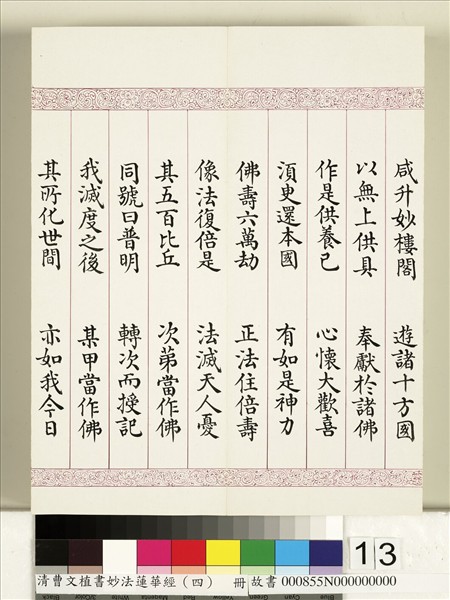 咸升妙樓閣 遊諸十方國
以無上供具 奉獻於諸佛
作是供養已 心懷大歡喜
湏臾還本國 有如是神力
佛壽六萬劫 正法住倍壽
像法復倍是 法滅天人憂
其五百比丘 次苐當作佛
同號曰普明 轉次而授記
我滅度之後 某甲當作佛
其所化世間 亦如我今日
13
清曹文植書妙法蓮華經（四） 冊 故書 000855N000000000